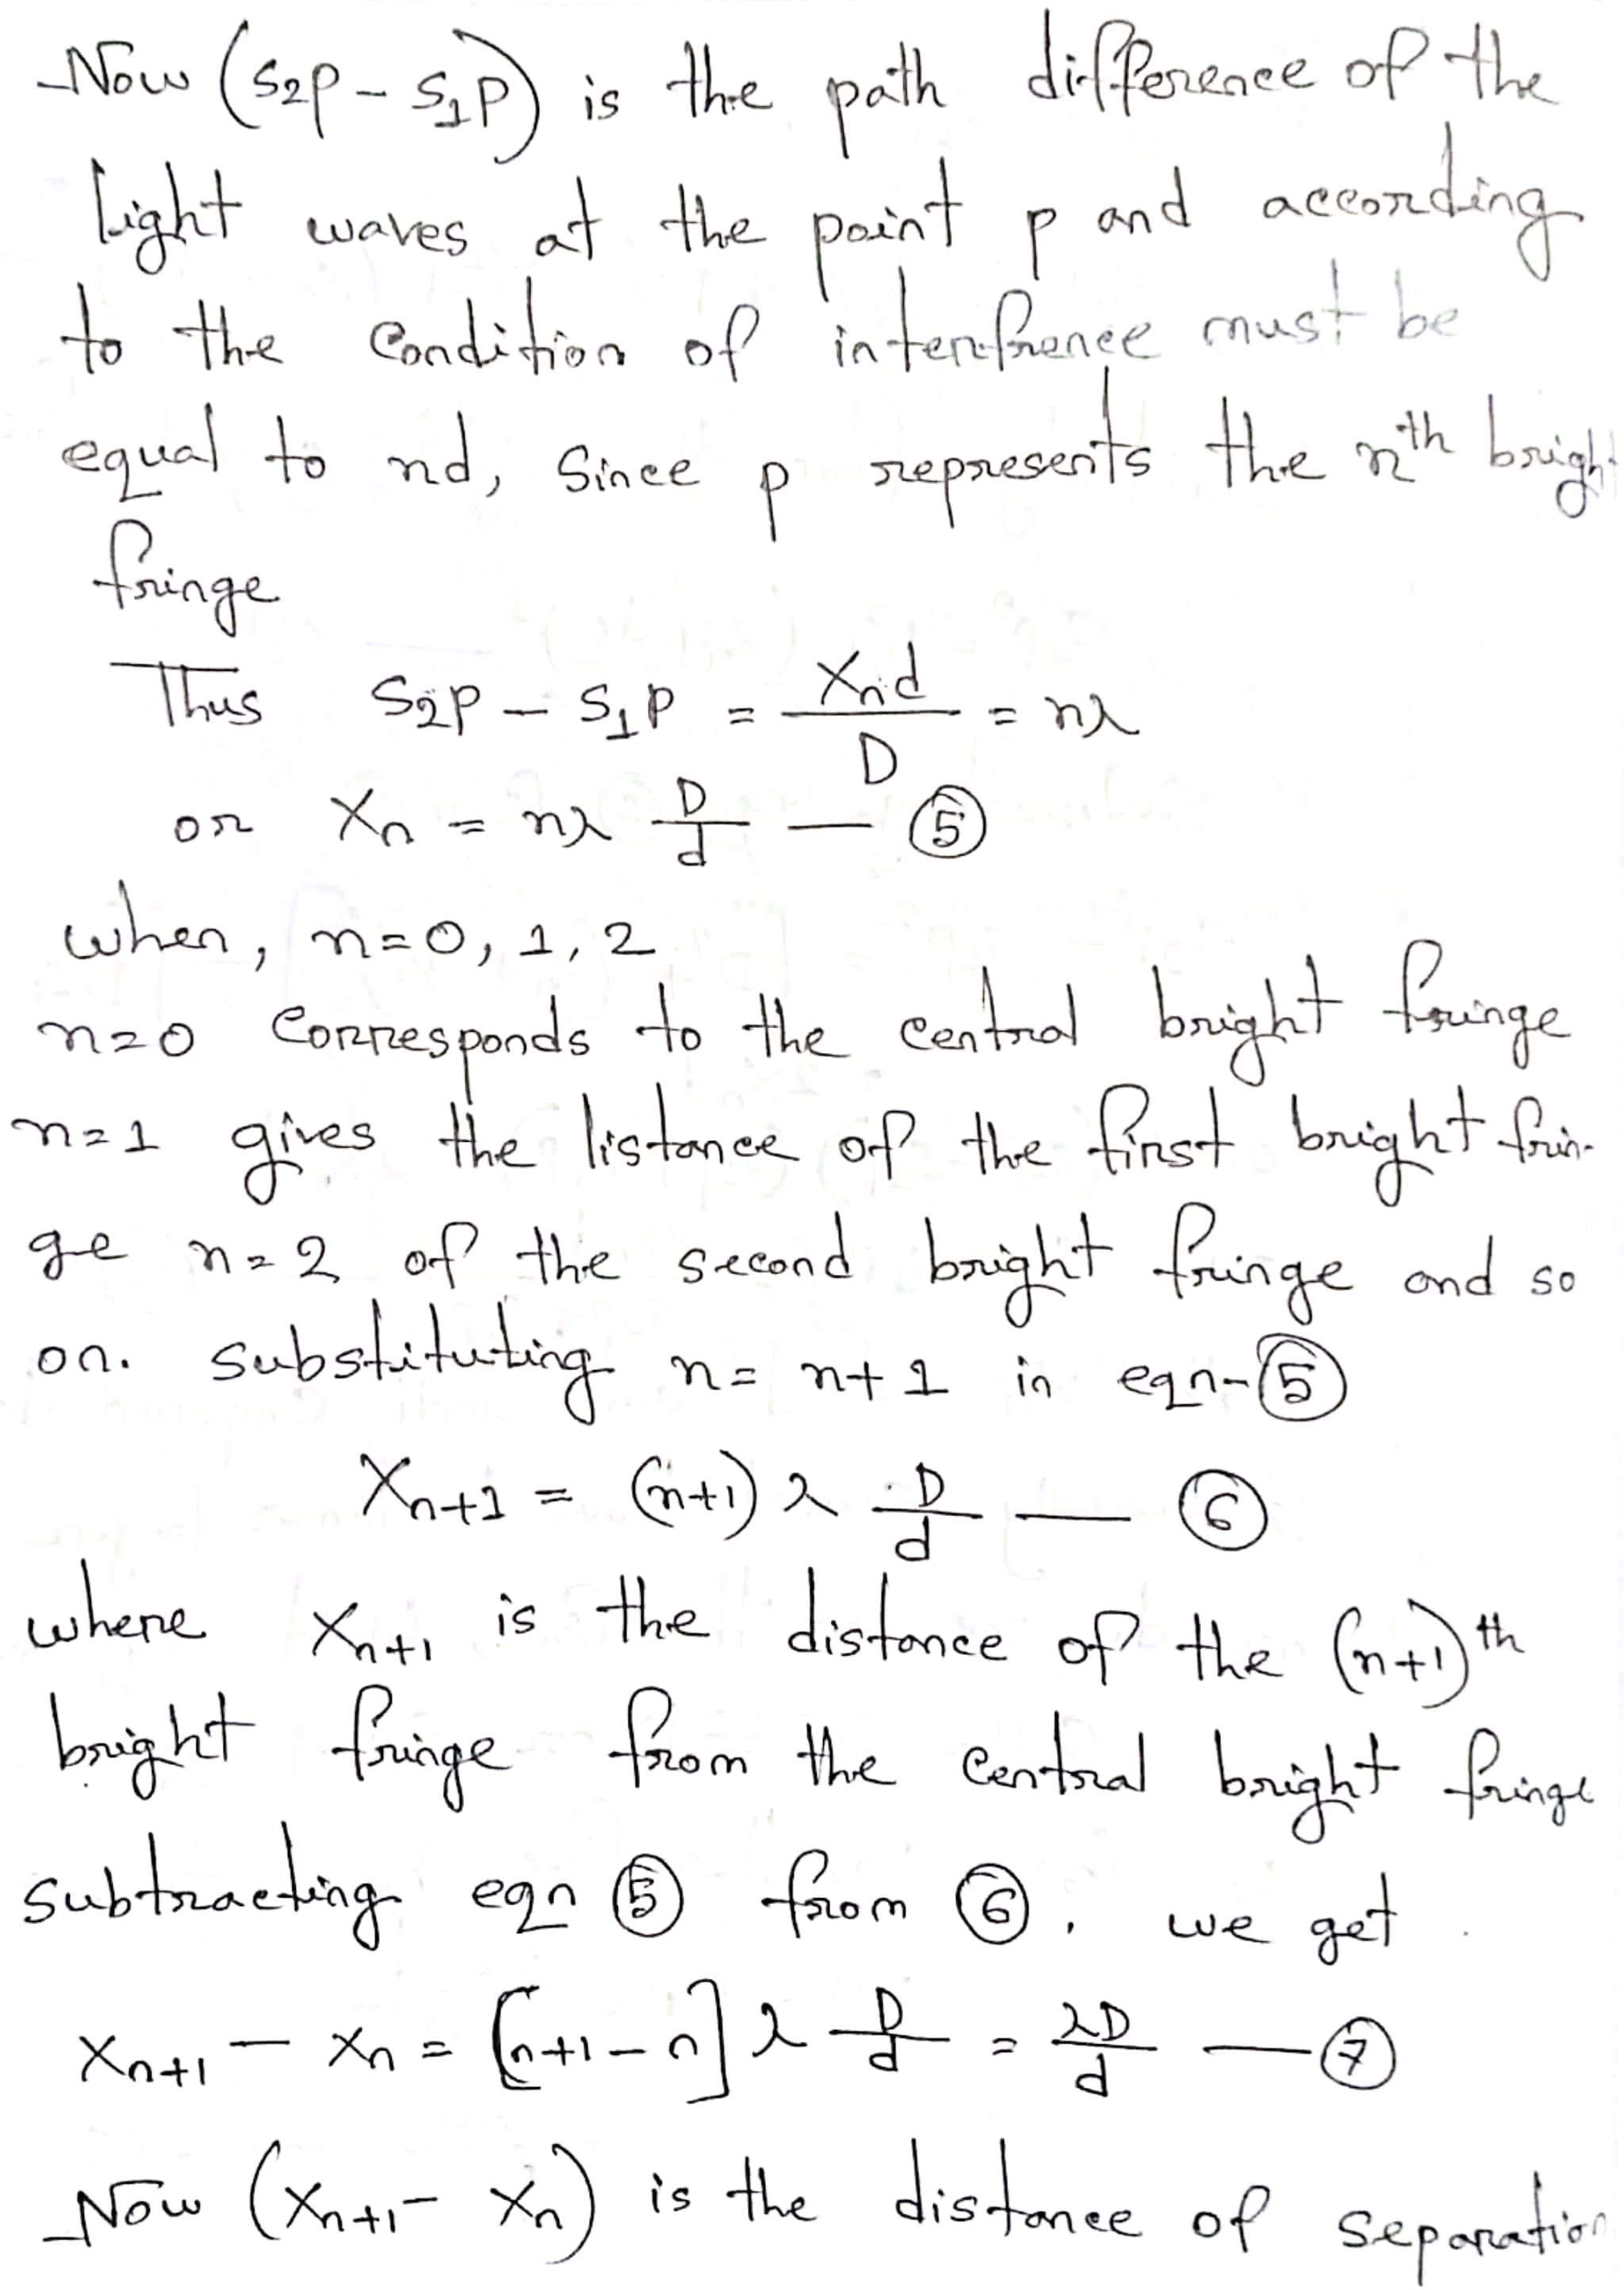 Now (S2P - S1P) is the path difference of the
light waves at the point p and according
to the condition of interfrence must be
equal to nd, Since p represents the nth bright
fringe
Thus S2P - S1P = Xnd/D = nλ
or Xn = nλ D/d — ⑤
when, n=0, 1, 2
n=0 corresponds to the central bright fringe
n=1 gives the listance of the first bright frin-
ge n=2 of the second bright fringe and so
on. substituting n = n+1 in eqn-⑤
Xn+1 = (n+1) λ D/d — ⑥
where Xn+1 is the distance of the (n+1)th
bright fringe from the central bright fringe
subtracting eqn ⑤ from ⑥, we get
Xn+1 - Xn = [n+1-n] λ D/d = λD/d — ⑦
Now (Xn+1 - Xn) is the distance of separation